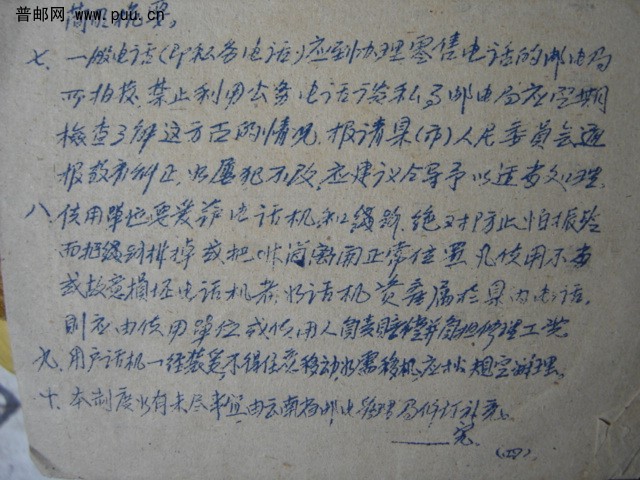 普邮网 www.puu.cn
简明扼要。
七、一般电话(即私务电话)应到办理零售电话的邮电局
所拍发,禁止利用公务电话谈私局邮电局应定期
检查了解这方面的情况,报请县(市)人民委员会通
报教育纠正,如屡犯不改,应建议领导予以适当处理。
八、使用单位要爱护电话机和线路,绝对防止怕振铃
而把线到掉或把听筒离开正常位置,凡使用不当
或故意损坏电话机者,如话机资产属于县内电话,
则应由使用单位或使用人负责赔偿并负担修理工费
九、用户话机一经装妥不得任意移动如需移机,应按规定办理。
十、本制度如有未尽事宜,由云南省邮电管理局修订补充。
——完
(四)